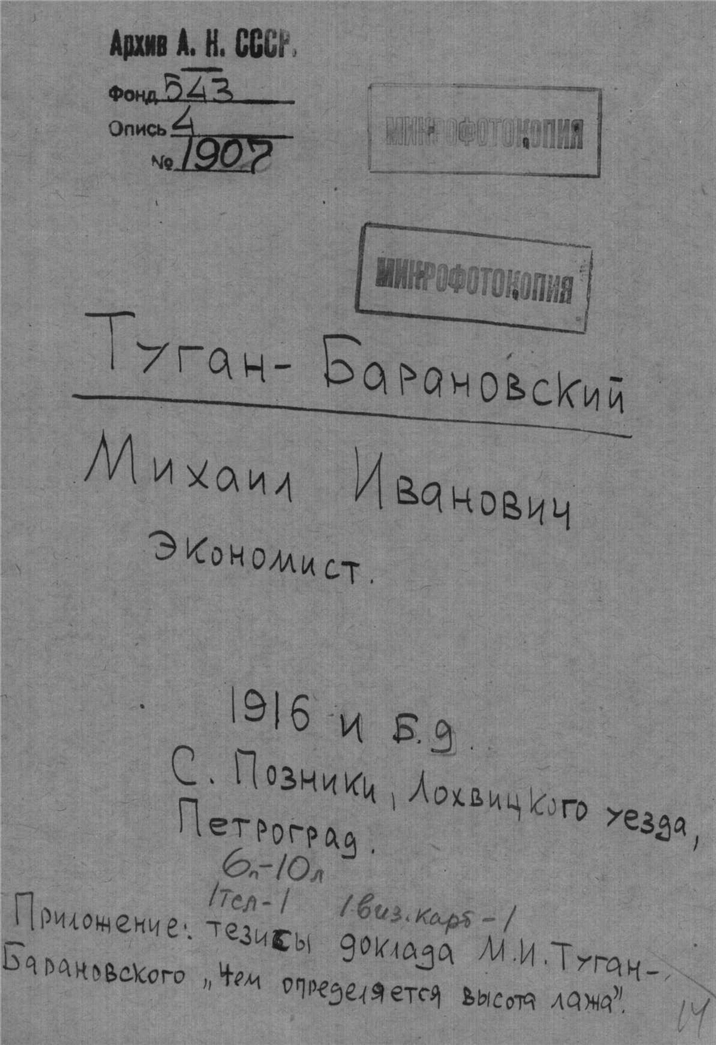 Архив А. Н. СССР.
Фонд 543
Опись 4
№ 1907
МИКРОФОТОКОПИЯ
МИКРОФОТОКОПИЯ
Туган-Барановский
Михаил Иванович
Экономист.
1916 и б.д.
С. Позники, Лохвицкого уезда,
Петроград.
6п-10л
1тел-1 1виз.карт-1
Приложение: тезисы доклада М.И.Туган-
Барановского „Чем определяется высота лажа".
14